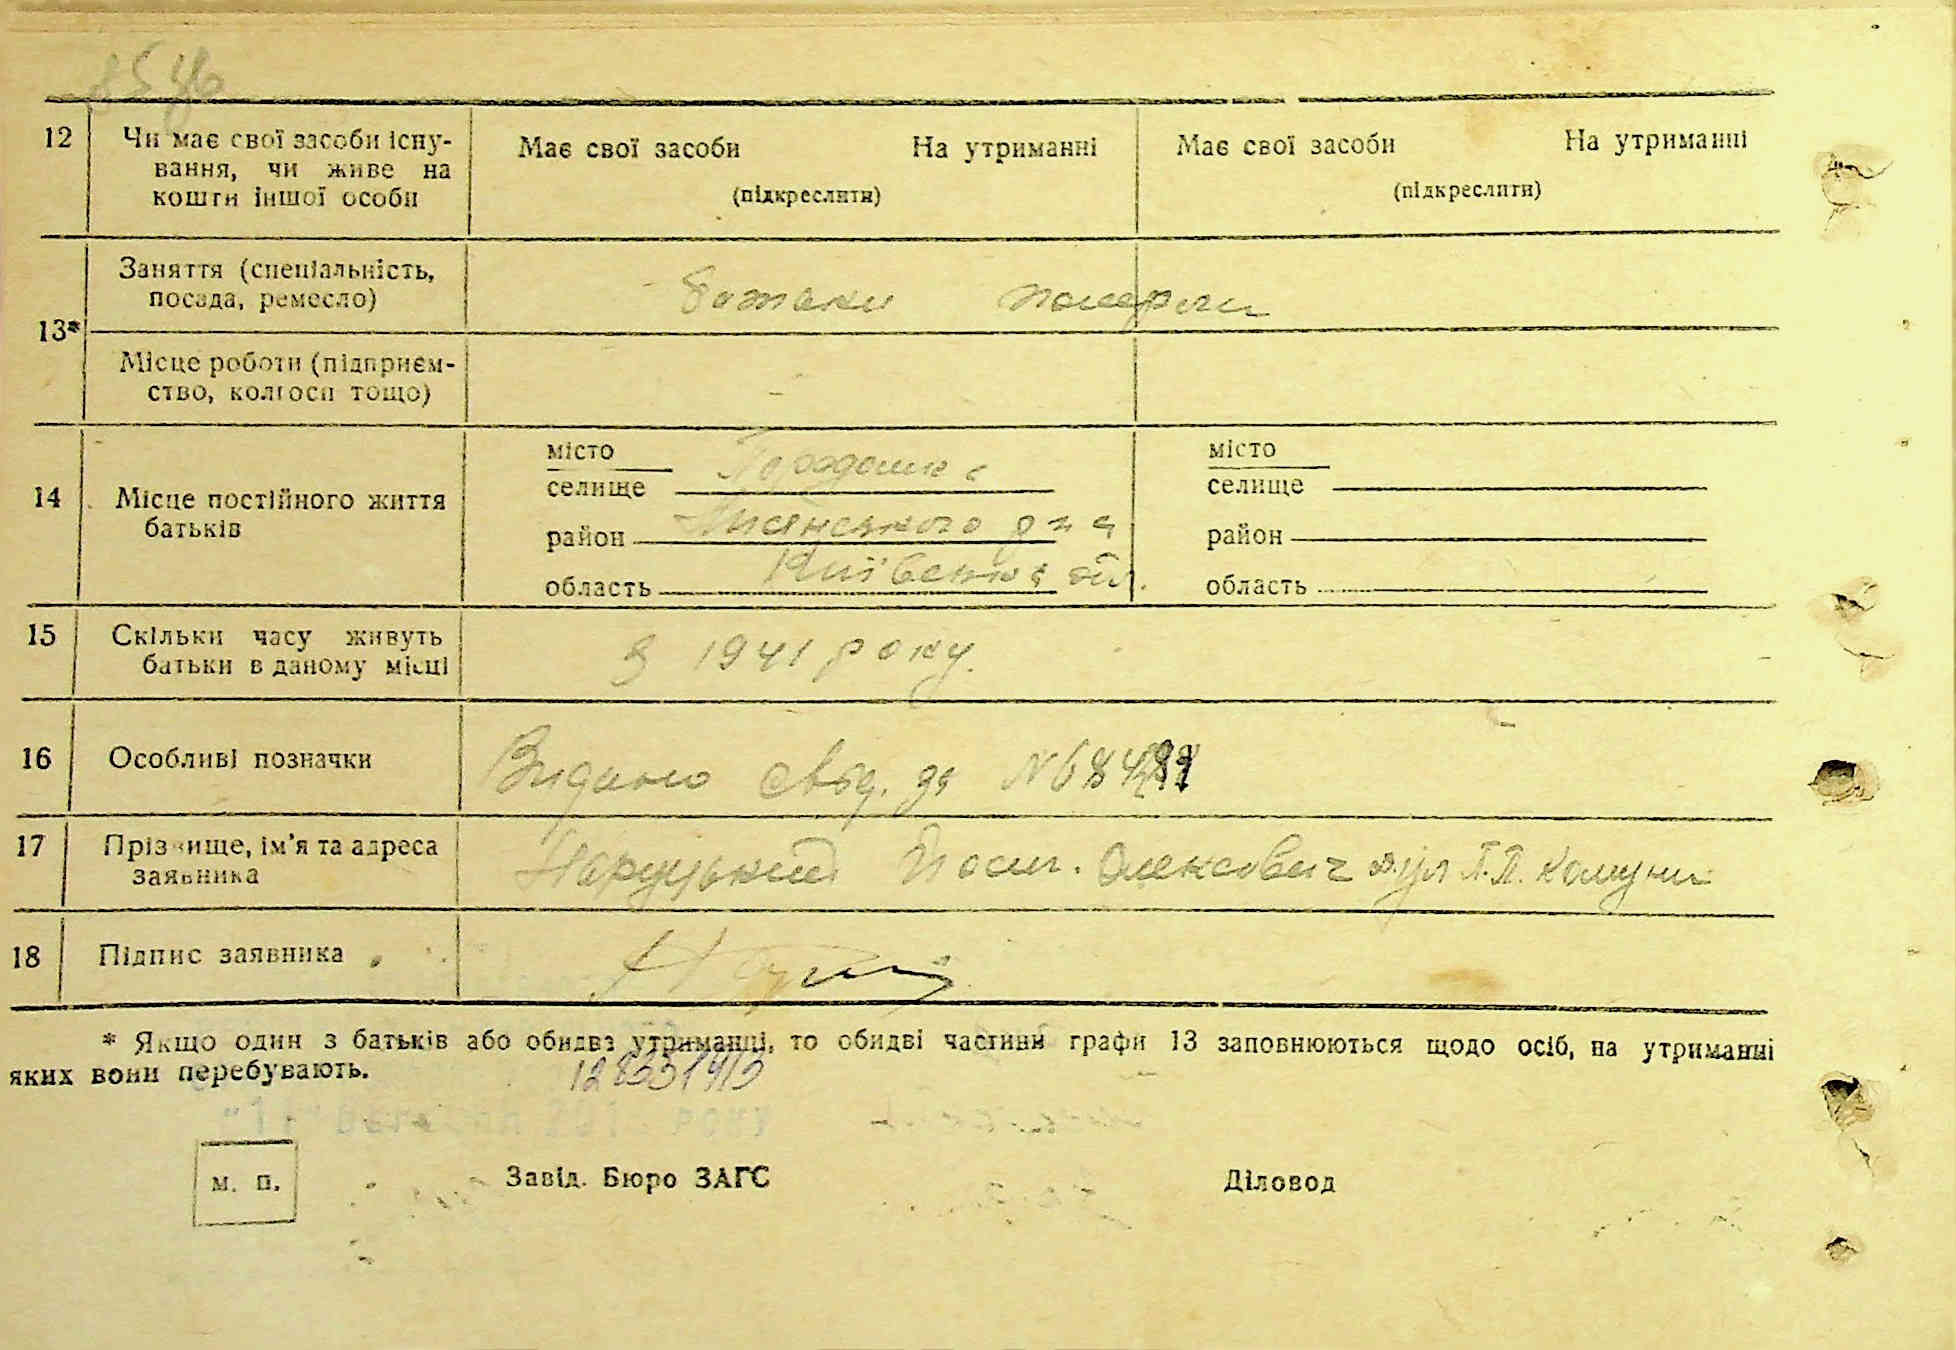 12 Чи має свої засоби існу-
вання, чи живе на
кошти іншої особи
Має свої засоби На утриманні
(підкреслити)
Має свої засоби На утриманні
(підкреслити)
13* Заняття (спеціальність,
посада, ремесло)
батьки померли
Місце роботи (підприєм-
ство, колгосп тощо)
14 Місце постійного життя
батьків
місто
селище
район
область Київської обл.
місто
селище
район
область
15 Скільки часу живуть
батьки в даному місці
з 1941 року
16 Особливі позначки
Видано свід. за №
17 Прізвище, ім'я та адреса
заявника
Йосип. Олексович вул П.П. Комуни
18 Підпис заявника
* Якщо один з батьків або обидва утриманці, то обидві частини графи 13 заповнюються щодо осіб, на утриманні
яких вони перебувають.
м. п.
Завід. Бюро ЗАГС
Діловод